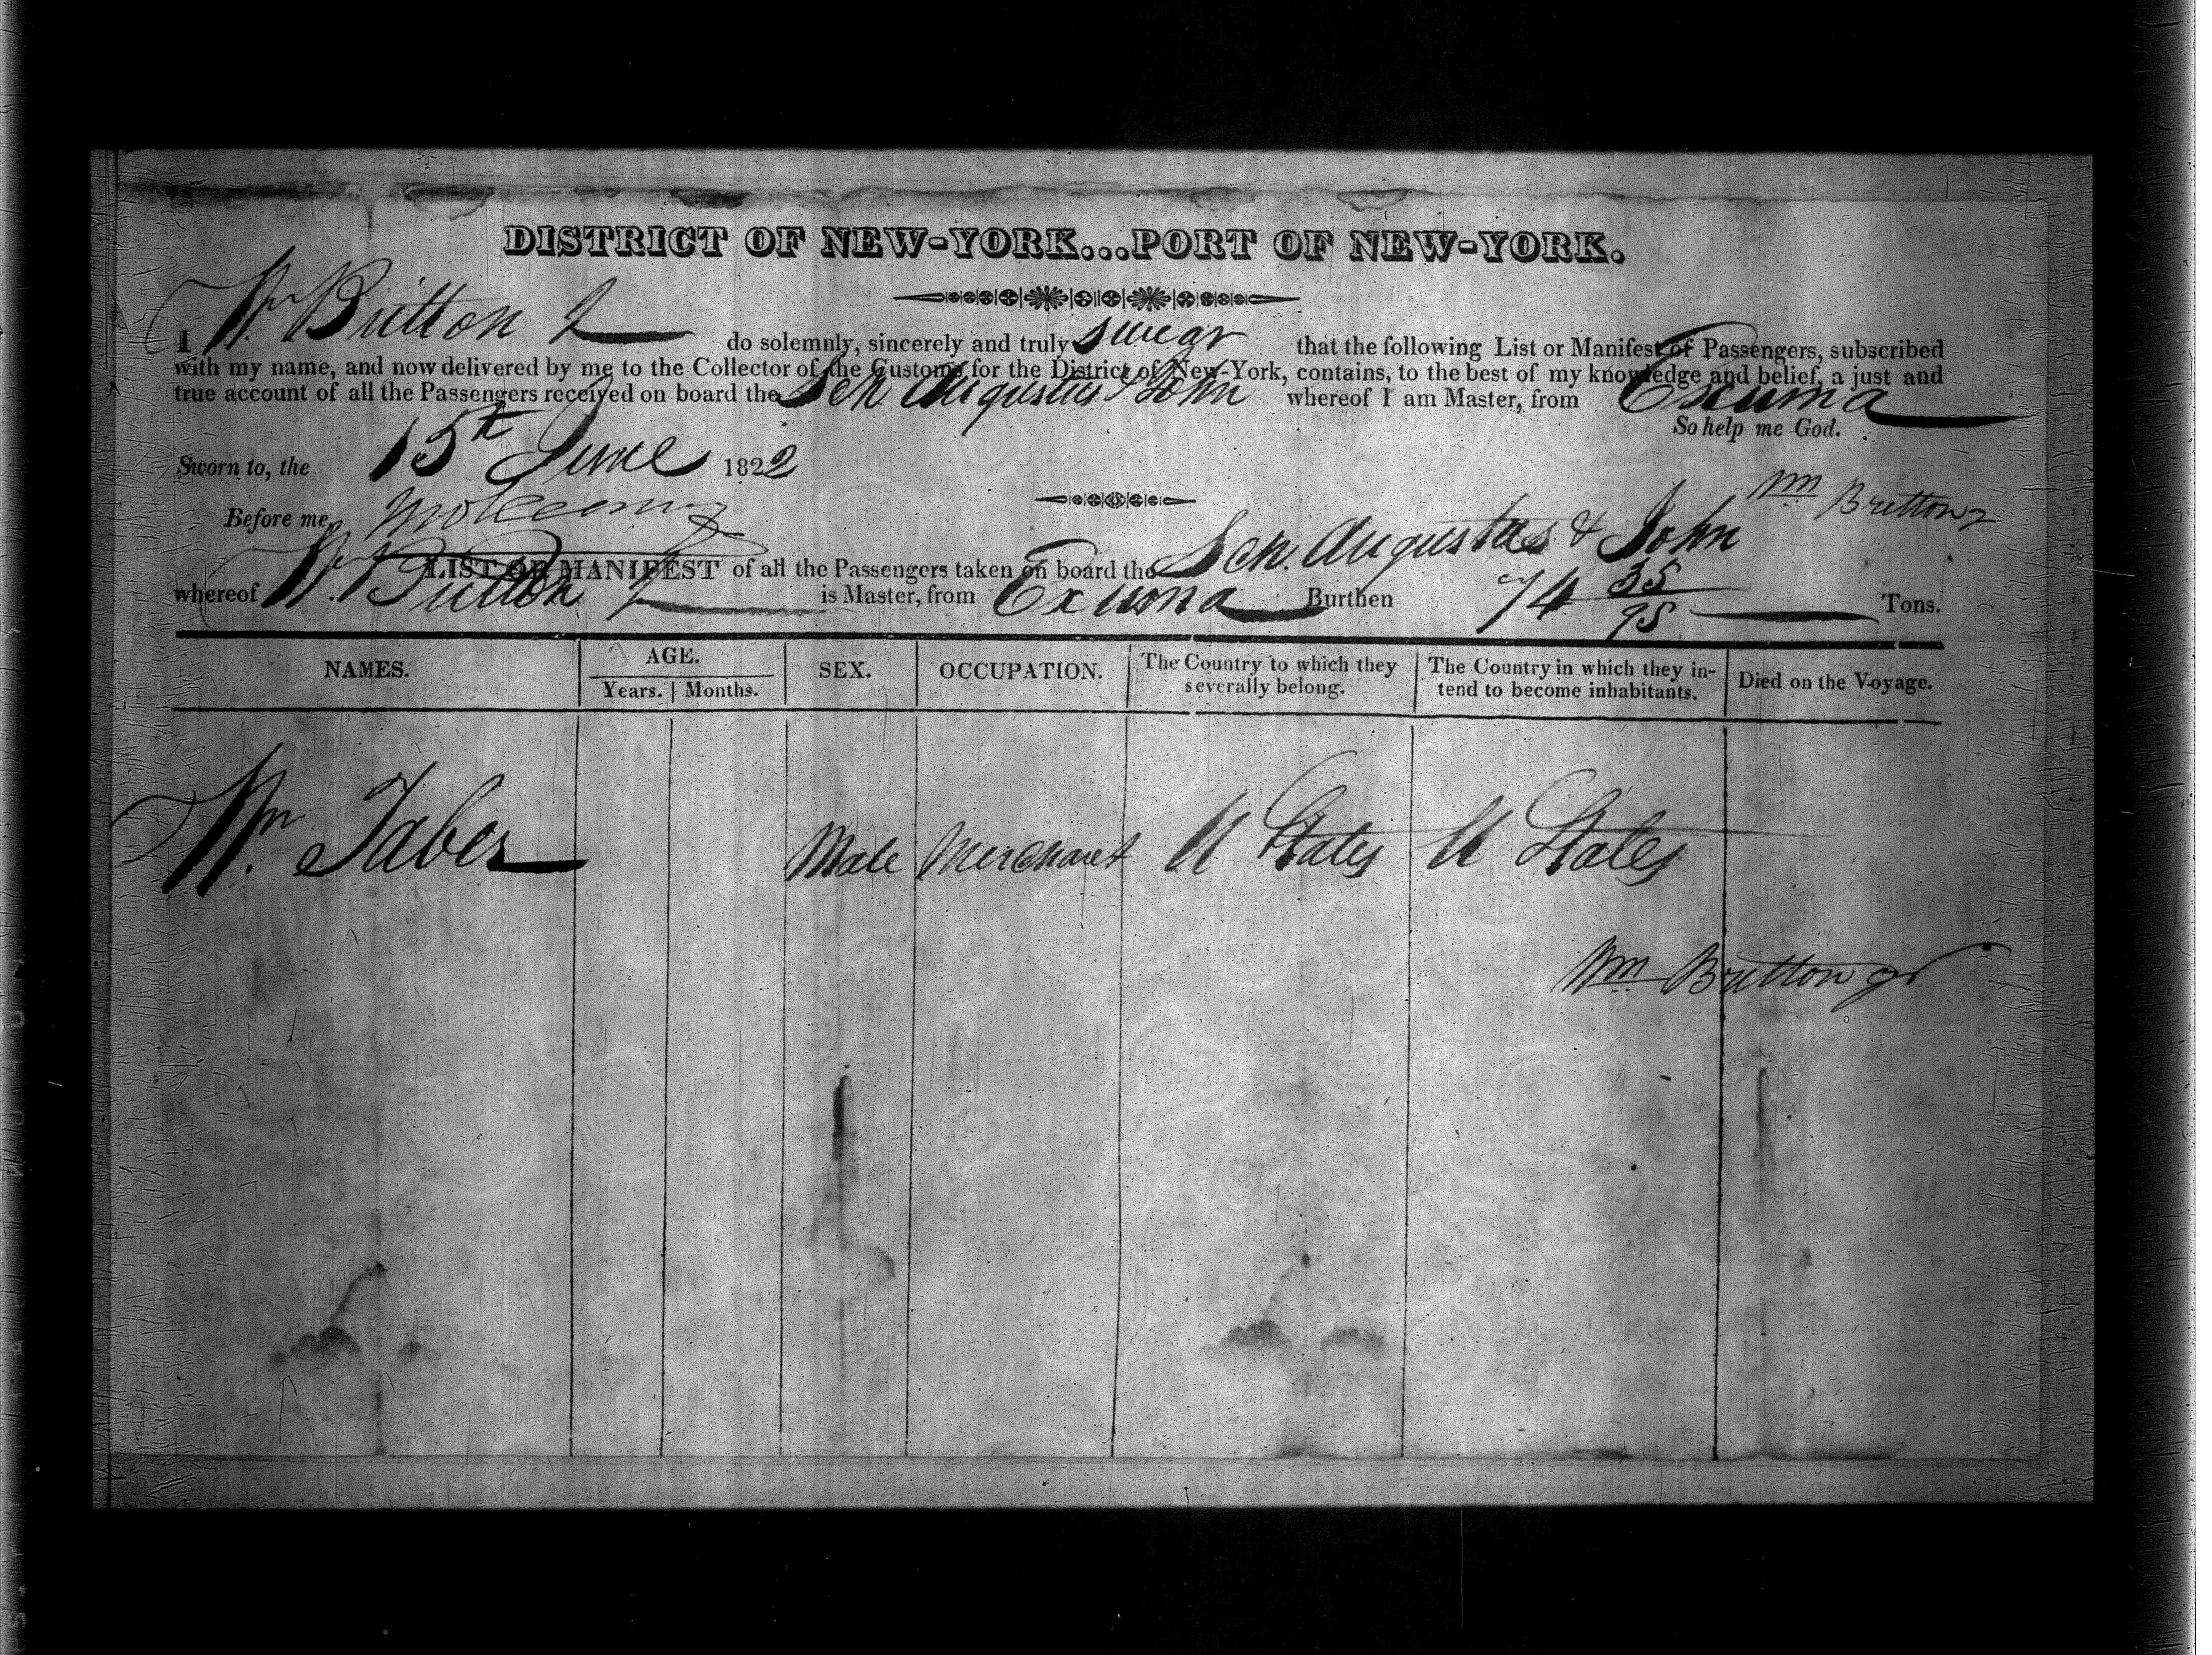 DISTRICT OF NEW-YORK...PORT OF NEW-YORK.
I Wm Britton Jr do solemnly, sincerely and truly swear that the following List or Manifest of Passengers, subscribed
with my name, and now delivered by me to the Collector of the Customs for the District of New-York, contains, to the best of my knowledge and belief, a just and
true account of all the Passengers received on board the Sch Augustus & John whereof I am Master, from Exuma
So help me God.
Sworn to, the 15th June 1822
Wm Britton Jr
Before me,
LIST OR MANIFEST of all the Passengers taken on board the Sch. Augustus & John
whereof Wm Britton Jr is Master, from Exuma Burthen 74 35/95 Tons.
NAMES. AGE. SEX. OCCUPATION. The Country to which they severally belong. The Country in which they in- tend to become inhabitants. Died on the Voyage.
Years. Months.
Wm Taber Male Merchant U States U States
Wm Britton Jr